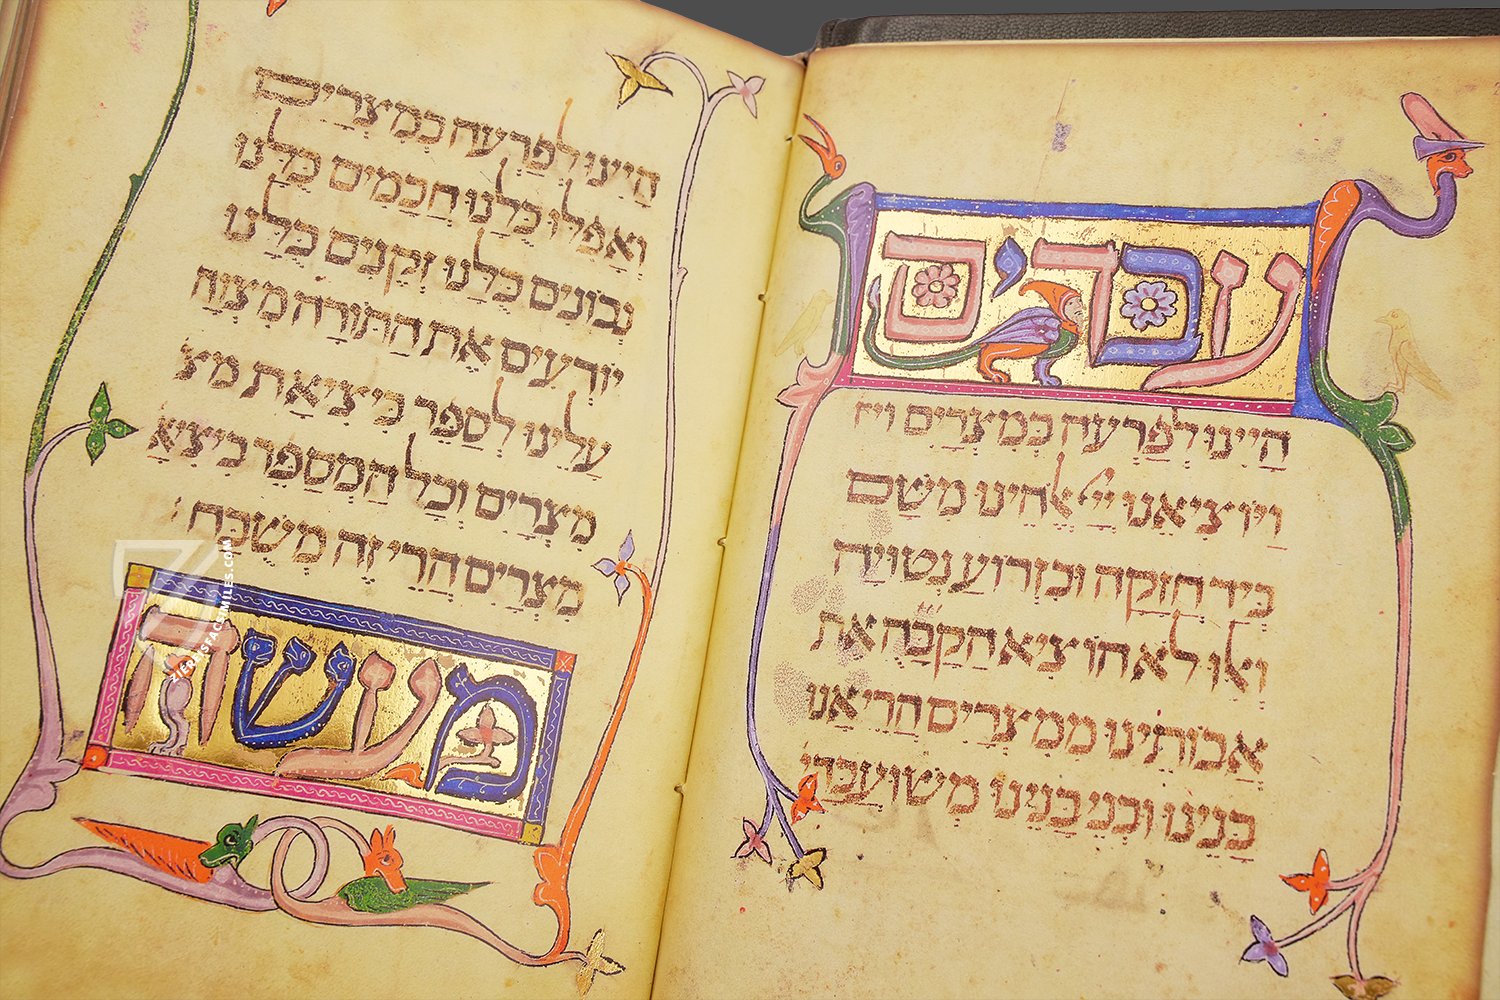 עבדים
היינו לפרעה במצרים וי
ויוציאנו יי אלהינו משם
ביד חזקה ובזרוע נטויה
ואלו לא הוציא הקבה את
אבותינו ממצרים הרי אנו
בנינו ובני בנינו משועבדי
היינו לפרעה במצרים
ואפלו כלנו חכמים כלנו
נבונים כלנו זקנים כלנו
יודעים את התורה מצוה
עלינו לספר ביציאת מצ
מצרים וכל המספר ביציא
מצרים הרי זה משבח:
מעשה
ZIEREISFACSIMILES.COM